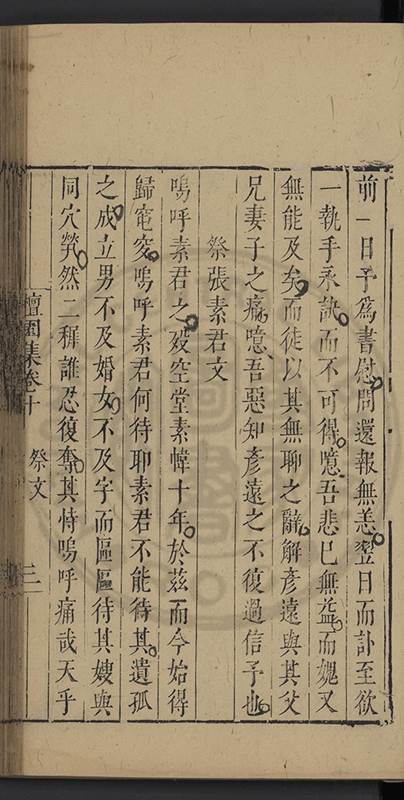 前一日予爲書慰問還報無恙翌日而訃至欲
一執手永訣而不可得噫吾悲已無益而媿又
無能及矣而徒以其無聊之辭解彥遠與其父
兄妻子之痛噫吾惡知彥遠之不復過信予也
祭張素君文
嗚呼素君之歿空堂素幃十年於茲而今始得
歸窀穸嗚呼素君何待聊素君不能待其遺孤
之成立男不及婚女不及字而區區待其嫂與
同穴煢然二穉誰忍復奪其恃嗚呼痛哉天乎
檀園集卷十 祭文 三